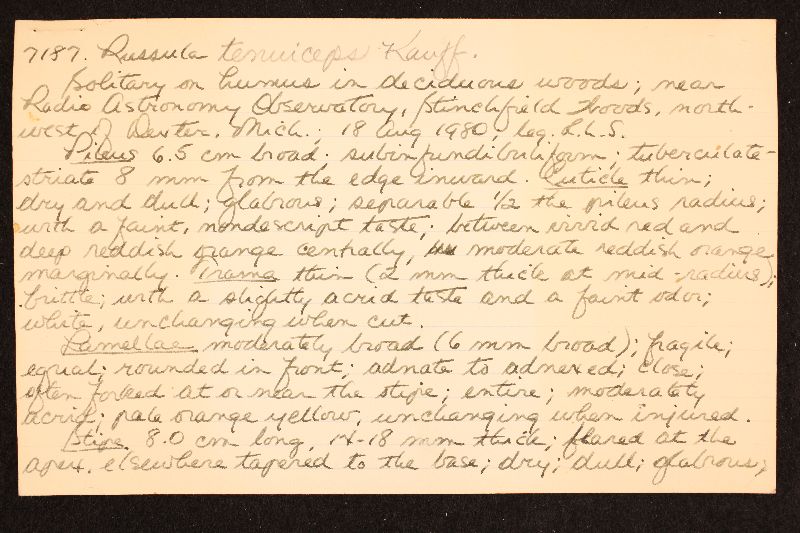 7187. Russula tenuiceps Kauff.
Solitary on humus in deciduous woods; near
Radio Astronomy Observatory, Stinchfield Woods, north-
west of Dexter, Mich.; 18 Aug 1980; leg. L.L.S.
Pileus 6.5 cm broad; subinfundibuliform; tuberculate-
striate 8 mm from the edge inward. Cuticle thin;
dry and dull; glabrous; separable 1/2 the pileus radius;
with a faint, nondescript taste; between vivid red and
deep reddish orange centrally, moderate reddish orange
marginally. Trama thin (2 mm thick at mid-radius);
brittle; with a slightly acrid taste and a faint odor;
white, unchanging when cut.
Lamellae moderately broad (6 mm broad); fragile;
equal; rounded in front; adnate to adnexed; close;
often forked at or near the stipe; entire; moderately
acrid; pale orange yellow, unchanging when injured.
Stipe 8.0 cm long, 14-18 mm thick; flared at the
apex, elsewhere tapered to the base; dry; dull; glabrous;